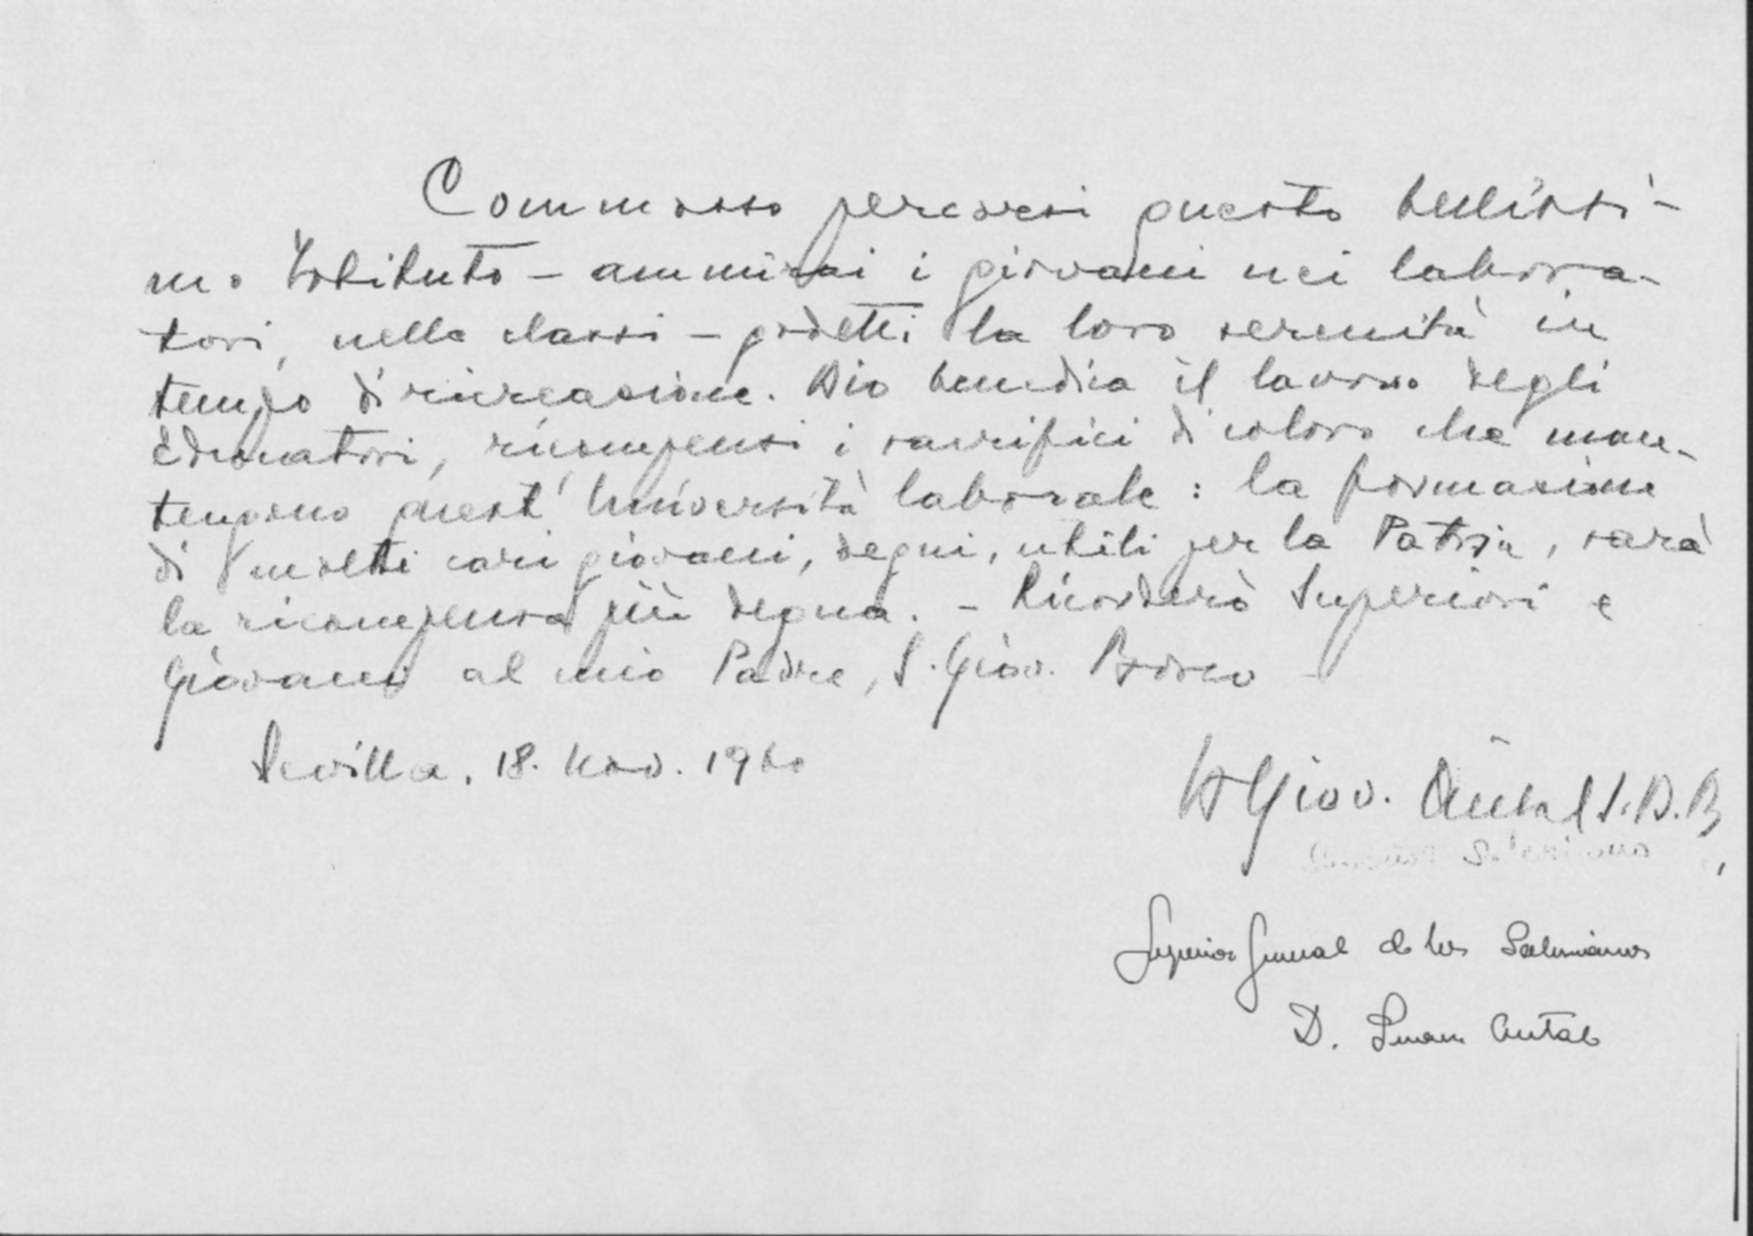 Commosso percorsi questo bellissi-
mo Istituto – ammirai i giovani nei labora-
tori, nelle classi – godetti la loro serenità in
tempo di ricreazione. Dio benedica il lavoro degli
Educatori, ricompensi i sacrifici di coloro che man-
tengono quest' Università laborale: la formazione
di molti cari giovani, degni, utili per la Patria, sarà
la ricompensa più degna. – Ricorderò Superiori e
Giovani al mio Padre, S. Giov. Bosco –
Sevilla, 18. Nov. 1960
Giov. Antal S.D.B.
Superior General de los Salesianos
D. Juan Antal